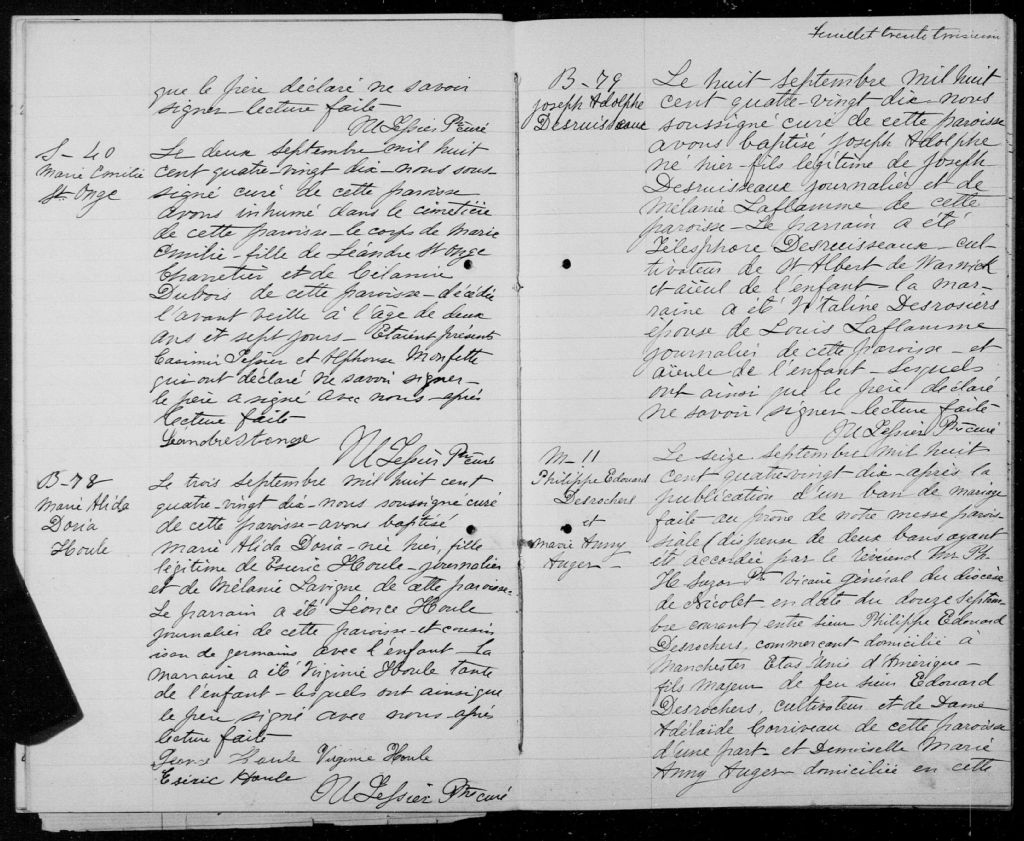 que le père déclaré ne savoir
signer - lecture faite -
M Lessier Ptre curé
S - 40
Marie Emilie
St. Onge
Le deux septembre mil huit
cent quatre-vingt dix - nous sous-
signé curé de cette paroisse
avons inhumé dans le cimetière
de cette paroisse - le corps de Marie
Emilie - fille de Léandre St Onge
Charretier et de Célanire
Dubois de cette paroisse - décédée
l'avant veille à l'âge de deux
ans et sept jours - Etaient présents
Casimir Tessier et Alphonse Monfette
qui ont déclaré ne savoir signer -
le père a signé avec nous - après
lecture faite
Léandre St onge
M Lessier Ptre curé
B - 78
Marie Alida
Doria
Houle
Le trois septembre mil huit cent
quatre-vingt dix - nous soussigné curé
de cette paroisse - avons baptisé
Marie Alida Doria - née hier, fille
légitime de Eseric Houle - journalier
et de Mélanie Lavigne de cette paroisse -
Le parrain a été Léonce Houle
journalier de cette paroisse - et cousin
issu de germains avec l'enfant - La
marraine a été Virginie Houle tante
de l'enfant - lesquels ont ainsi que
le père signé avec nous - après
lecture faite
Léonce Houle Virginie Houle
Eséric Houle
M Lessier Ptre curé
Feuillet trente troisième
B - 79
Joseph Adolphe
Desruisseaux
Le huit septembre mil huit
cent quatre-vingt dix - nous
soussigné curé de cette paroisse
avons baptisé Joseph Adolphe
né hier - fils légitime de Joseph
Desruisseaux journalier et de
Mélanie Laflamme de cette
paroisse - Le parrain a été
Télesphore Desruisseaux - cul-
tivateur de St Albert de Warwick
et aïeul de l'enfant - la mar-
raine a été Vitaline Desrosiers
épouse de Louis Laflamme
journalier de cette paroisse - et
aïeule de l'enfant - lesquels
ont ainsi que le père déclaré
ne savoir signer - lecture faite -
M Lessier Ptre curé
M - 11
Philippe Edouard
Desrochers
et
Marie Anny
Auger -
Le seize septembre mil huit
cent quatre-vingt dix - après la
publication d'un ban de mariage
faite au prône de notre messe parois-
siale (dispense de deux bans ayant
été accordée par le révérend Mr. Ph
H Suzor Ptre Vicaire général du diocèse
de Nicolet - en date du douze septem-
bre courant) entre sieur Philippe Edouard
Desrochers, commerçant domicilié à
Manchester Etas Unis d'Amérique -
fils majeur de feu sieur Edouard
Desrochers, cultivateur et de Dame
Adélaïde Corriveau de cette paroisse
d'une part - et Demoiselle Marie
Anny Auger - domiciliée en cette